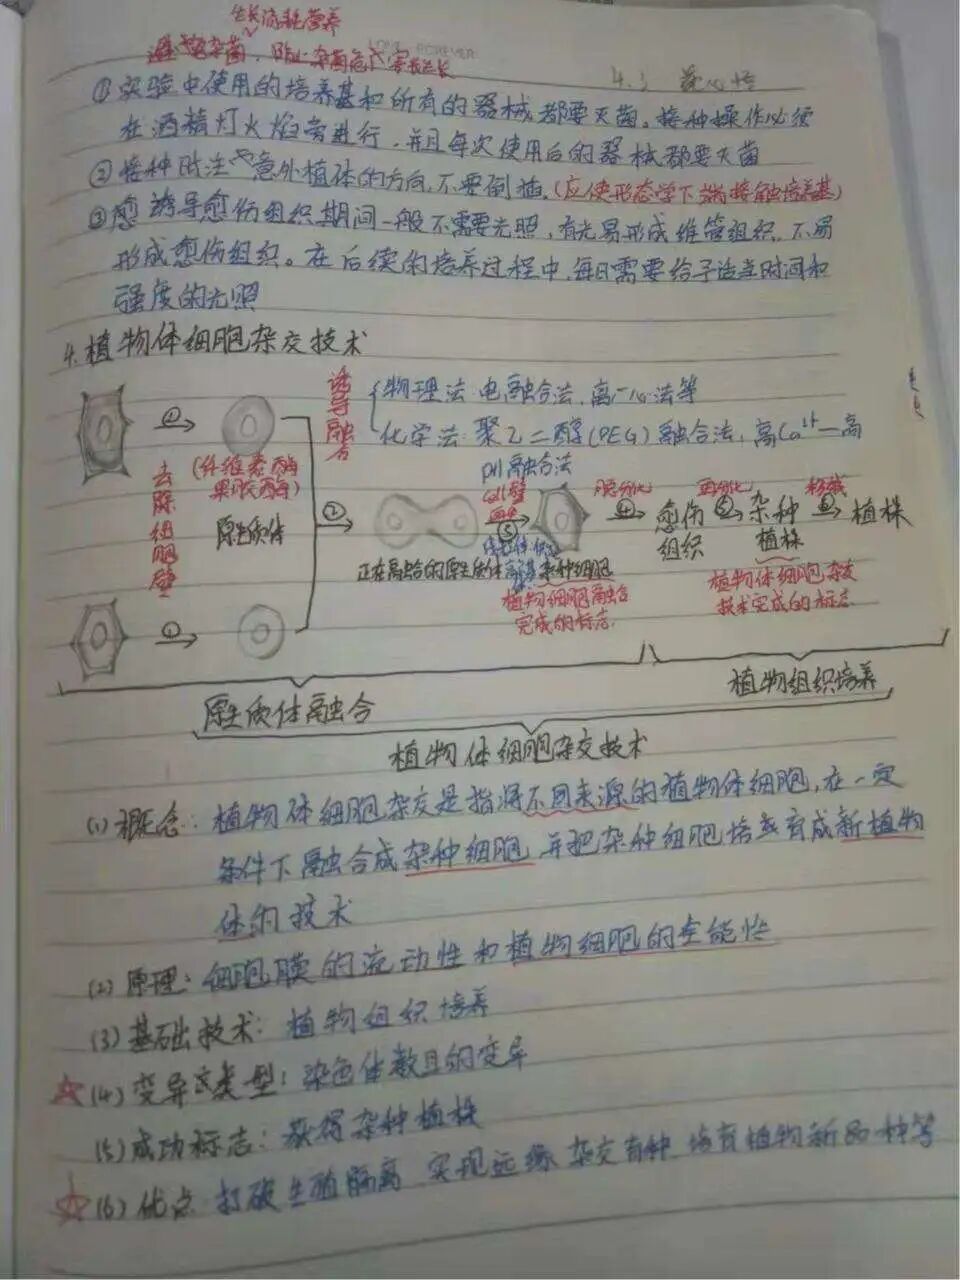 生长消耗营养
避免杂菌，防止杂菌危害生长
FOREVER
①实验中使用的培养基和所有的器械都要灭菌。接种操作必须
在酒精灯火焰旁进行，并且每次使用后的器械都要灭菌
②接种时注意外植体的方向，不要倒插。(应使形态学下端接触培养基)
③愈 诱导愈伤组织期间一般不需要光照，有光易形成维管组织，不易
形成愈伤组织。在后续的培养过程中，每日需要给予适当时间和
强度的光照
4.植物体细胞杂交技术
诱导融合
物理法：电融合法，离心法等
化学法：聚乙二醇(PEG)融合法，高Ca²⁺—高
pH融合法
去除细胞壁
①
(纤维素酶
果胶酶)
原生质体
①
②
正在融合的原生质体
③
杂种细胞
植物细胞融合
完成的标志.
脱分化
④
愈伤
组织
再分化
⑤
杂种
植株
移栽
⑥
植株
植物体细胞杂交
技术完成的标志.
原生质体融合
植物组织培养
植物体细胞杂交技术
(1)概念：植物体细胞杂交是指将不同来源的植物体细胞，在一定
条件下融合成杂种细胞，并把杂种细胞培育成新植物
体的技术
(2)原理：细胞膜的流动性和植物细胞的全能性
(3)基础技术：植物组织培养
(4)变异类型：染色体数目的变异
(5)成功标志：获得杂种植株
(6)优点：打破生殖隔离 实现远缘杂交育种 培育植物新品种等